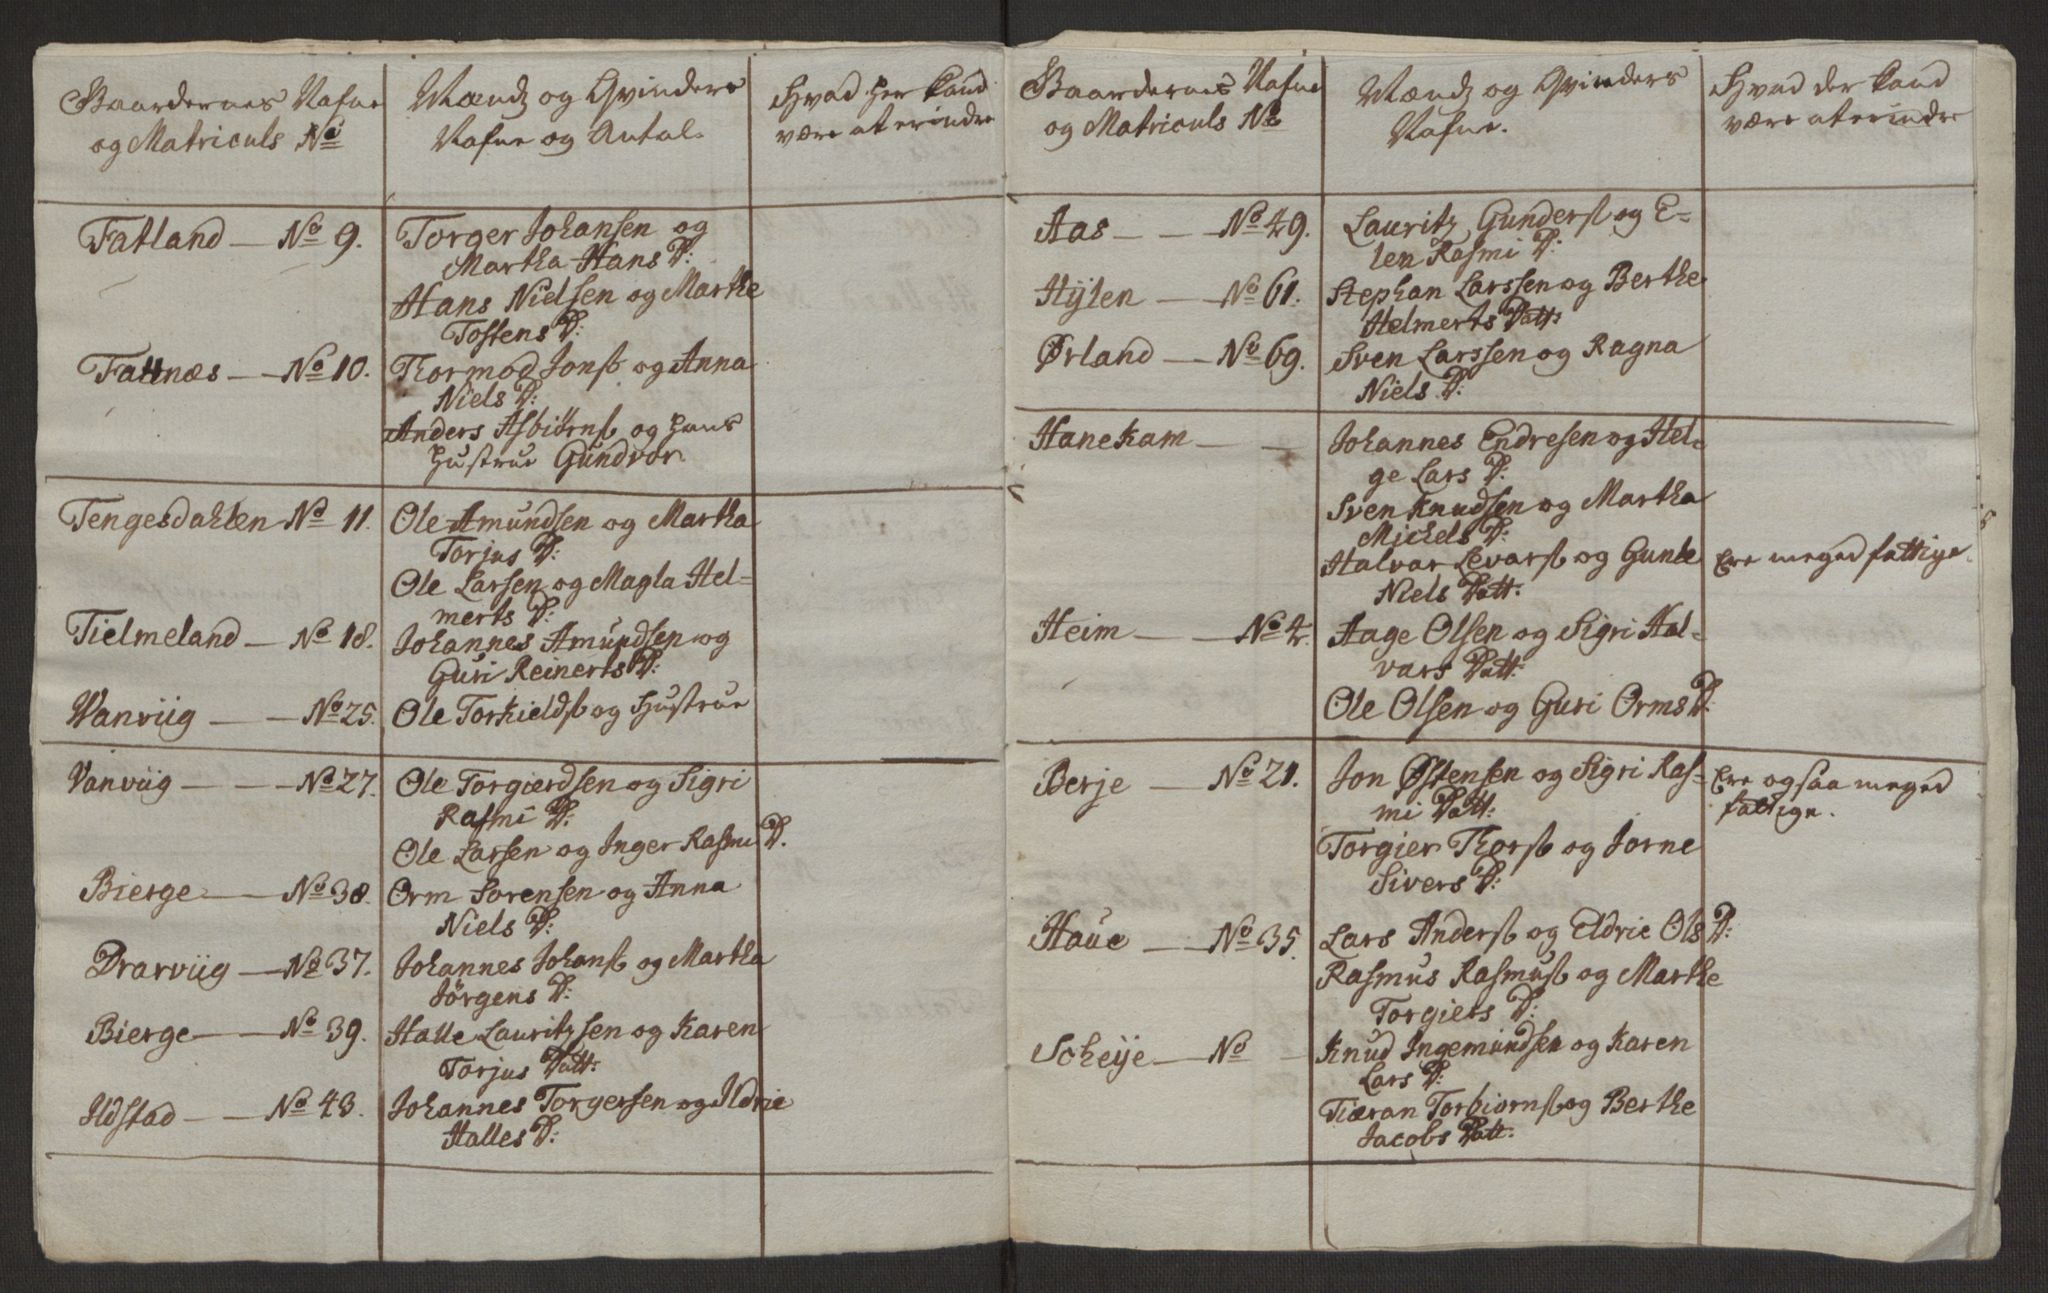 Gaardernes Nafne
og Matriculs No
Mændz og Qvinders
Nafne og Antal.
Hvad her kand
være at erindre
Fatland — No 9. Torger Johansen og
Martha Hans D:
Hans Nielsen og Marthe
Tostens D:
Fattnæs — No 10. Thormod Jonss og Anna
Niels D:
Anders Asbiørnss og hans
Hustrue Gundvor
Tengesdahlen No 11. Ole Amundsen og Martha
Torjus D:
Ole Larsen og Magla Hel-
merts D:
Tielmeland — No 18. Johannes Amundsen og
Guri Reinerts D:
Vanviig — — No 25. Ole Torkieldss og Hustrue
Vanviig — — No 27. Ole Torgierdsen og Sigri
Rasmi D:
Ole Larsen og Inger Rasmi D.
Bierge — — No 38. Orm Sorensen og Anna
Niels D:
Drarviig — No 37. Johannes Johanss og Martha
Jörgens D:
Bierge — — No 39. Halle Lauritzsen og Karen
Torjus Datt:
Ildstad — — No 43. Johannes Torgersen og Ildrie
Halles D:
Gaardernes Nafne
og Matriculs No
Mændz og Qvinders
Nafne.
Hvad der kand
være at erindre
Aas — — No 49. Lauritz Gunderss og E-
len Rasmi D:
Hylen — No 61. Stephan Larssen og Berthe
Helmerts Datt:
Ørland — No 69. Sven Larssen og Ragna
Niels D:
Hanekam — — Johannes Endresen og Hel-
ge Lars D:
Sven Knudsen og Martha
Michels D:
Halvar Levarss og Gunle Ere meged fattige.
Niels Datt:
Heim — — No 4. Aage Olsen og Sigri Hal-
vars Datt:
Ole Olsen og Guri Orms D:
Berje — No 21. Jon Østensen og Sigri Ras- Ere ogsaa meged
mi Datt: fattige.
Torgier Thorss og Jorne
Sivers D:
Haue — No 35. Lars Anderss og Eldrie Ols D:
Rasmus Rasmuss og Marthe
Torgiers D:
Scheije — No — Knud Ingemundsen og Karen
Lars D:
Tiæran Torbiornss og Berthe
Jacobs Datt: